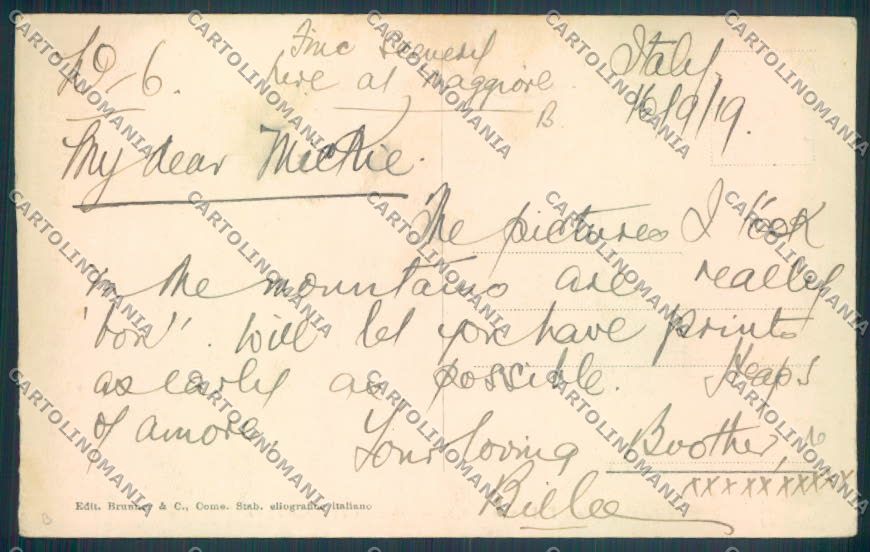 Fine scenery
here at Maggiore
B.
Italy
16/9/19.
My dear Mickie.
The pictures I took
in the mountains are really
"bon". Will let you have prints
as early as possible. Heaps
of amore.
Your loving Brother,
Billee
xxxxxxxxx
Edit. Brunner & C., Como. Stab. eliografico italiano
CARTOLINOMANIA